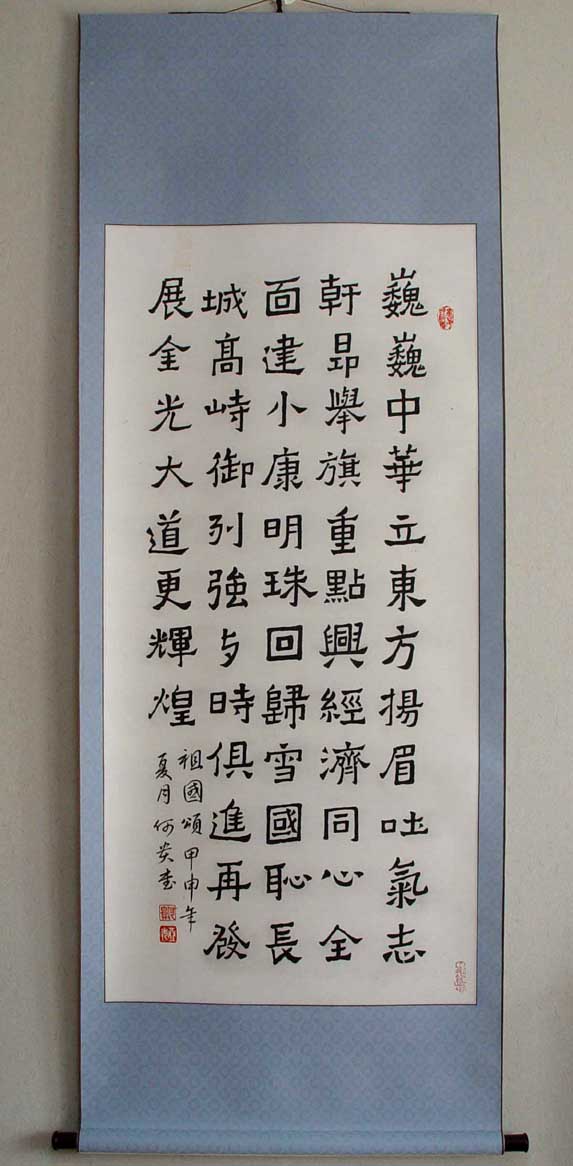 巍巍中華立東方揚眉吐氣志
軒昂舉旗重點興經濟同心全
面建小康明珠回歸雪國恥長
城高峙御列強与時俱進再發
展全光大道更輝煌
祖國頌甲申年
夏月何炎書